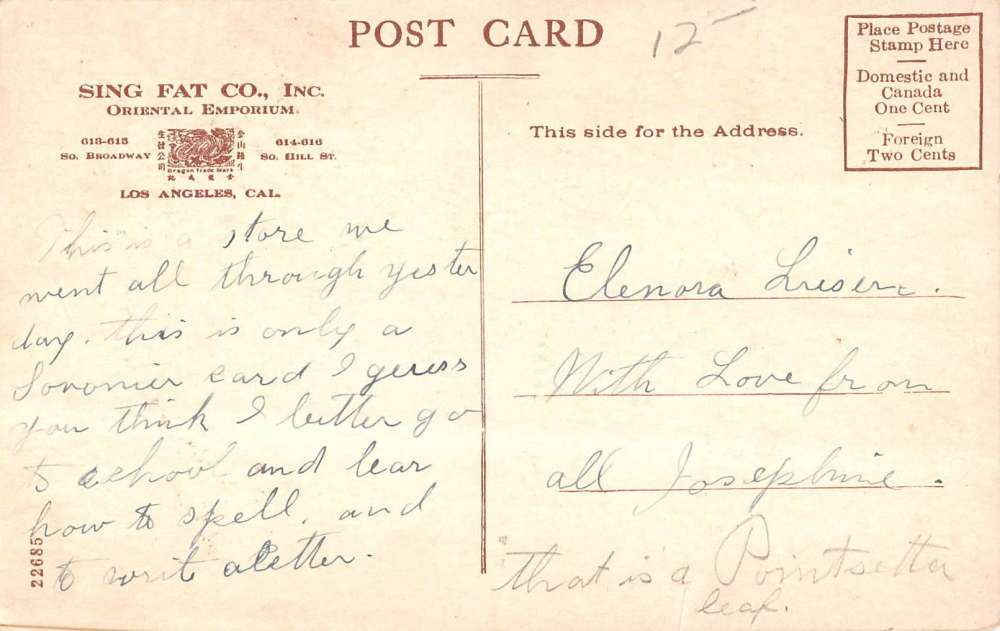 POST CARD
12
Place Postage
Stamp Here
Domestic and
Canada
One Cent
Foreign
Two Cents
SING FAT CO., INC.
ORIENTAL EMPORIUM.
613-615
SO. BROADWAY
Dragon Trade Mark
614-616
SO. HILL ST.
LOS ANGELES, CAL.
This side for the Address.
This is a store we
went all through yester
day. this is only a
Sovonier card I geuss
you think I better go
to school and lear
how to spell. and
to write a letter.
22685
Elenora
With Love from
all Josephine.
that is a Pointsetta
leaf.